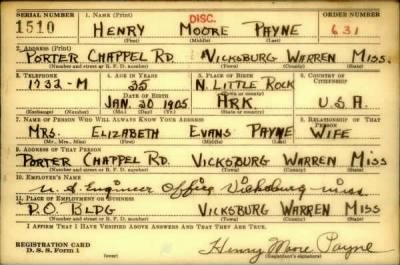 SERIAL NUMBER 1. NAME (Print) ORDER NUMBER
DISC.
1510 HENRY MOORE PAYNE 631
(First) (Middle) (Last)
2. ADDRESS (Print)
PORTER CHAPPEL RD. VICKSBURG WARREN MISS.
(Number and street or R. F. D. number) (Town) (County) (State)
3. TELEPHONE 4. AGE IN YEARS 5. PLACE OF BIRTH 6. COUNTRY OF CITIZENSHIP
1733-M 35 N. LITTLE ROCK
DATE OF BIRTH (Town or county)
JAN. 30 1905 ARK. U.S.A.
(Exchange) (Number) (Mo.) (Day) (Yr.) (State or country)
7. NAME OF PERSON WHO WILL ALWAYS KNOW YOUR ADDRESS 8. RELATIONSHIP OF THAT PERSON
MRS. ELIZABETH EVANS PAYNE WIFE
(Mr., Mrs., Miss) (First) (Middle) (Last)
9. ADDRESS OF THAT PERSON
PORTER CHAPPEL RD. VICKSBURG WARREN MISS
(Number and street or R. F. D. number) (Town) (County) (State)
10. EMPLOYER'S NAME
U. S. Engineer Office Vicksburg Miss
11. PLACE OF EMPLOYMENT OR BUSINESS
P.O. BLDG VICKSBURG WARREN MISS
(Number and street or R. F. D. number) (Town) (County) (State)
I AFFIRM THAT I HAVE VERIFIED ABOVE ANSWERS AND THAT THEY ARE TRUE.
REGISTRATION CARD
D. S. S. Form 1 Henry Moore Payne
(Registrant's signature)